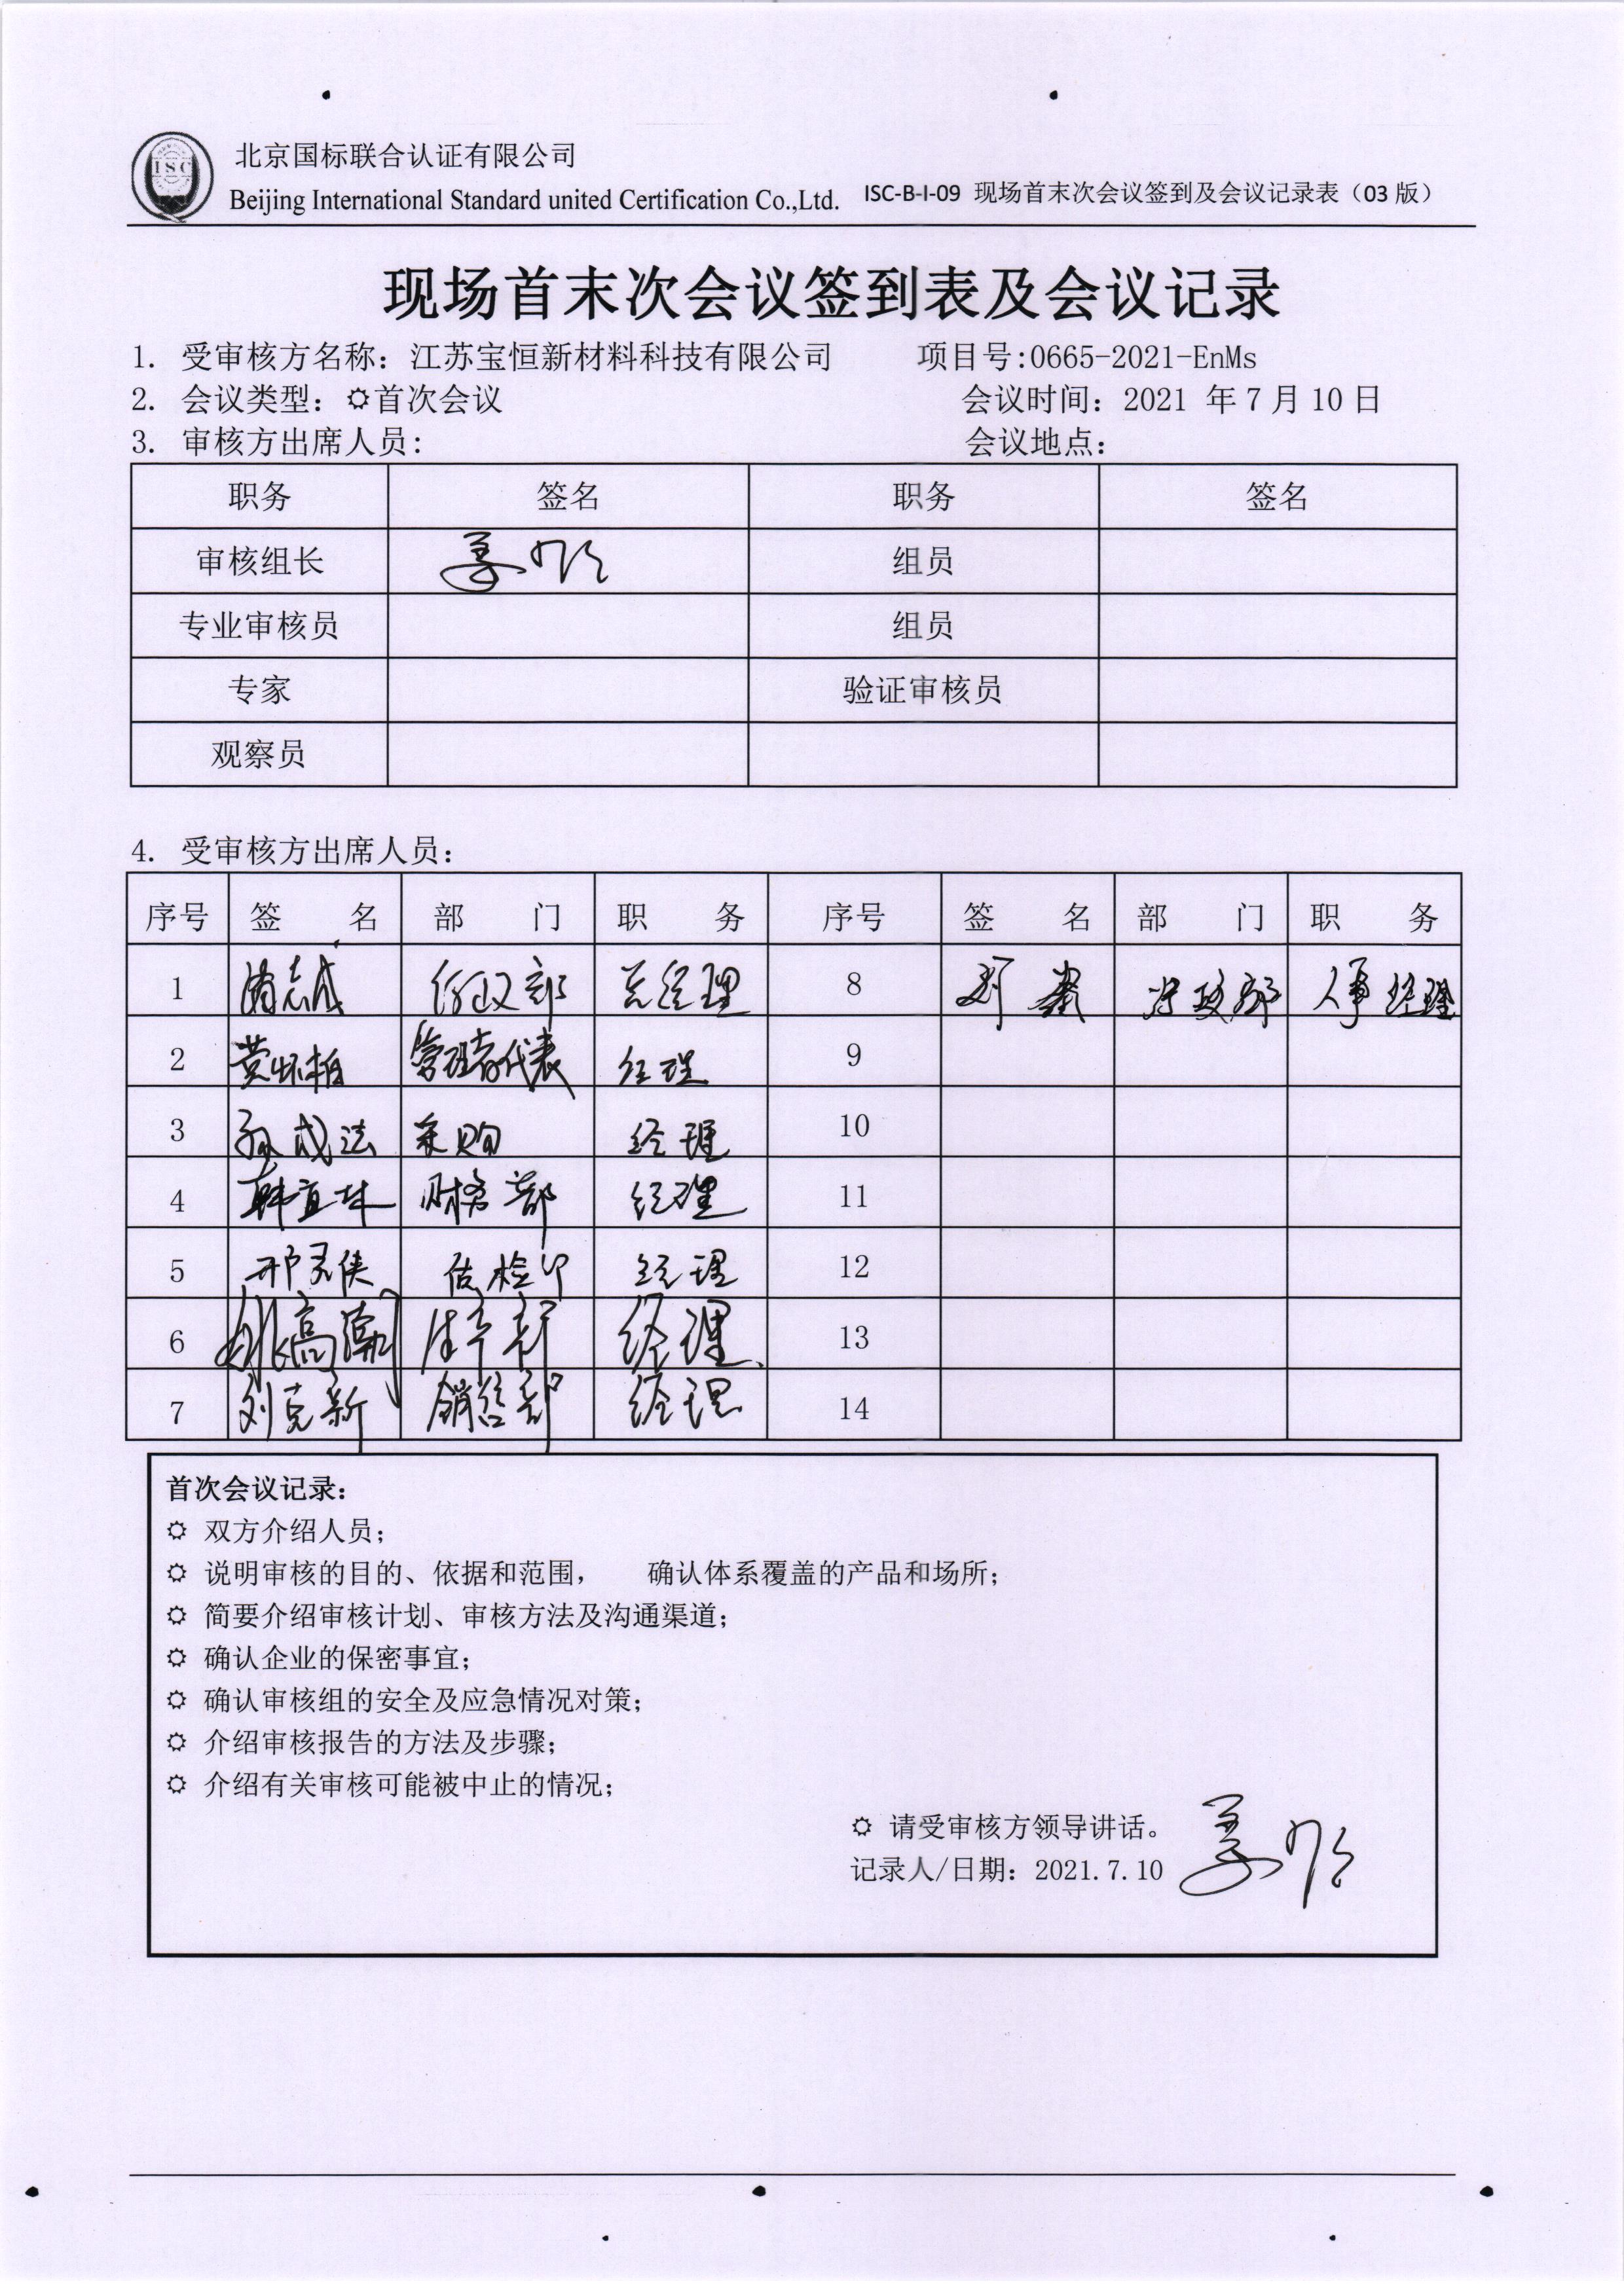 ISC
北京国标联合认证有限公司
Beijing International Standard united Certification Co.,Ltd. ISC-B-I-09 现场首末次会议签到及会议记录表（03 版）
现场首末次会议签到表及会议记录
1. 受审核方名称：江苏宝恒新材料科技有限公司 项目号:0665-2021-EnMs
2. 会议类型：☼首次会议 会议时间：2021 年 7 月 10 日
3. 审核方出席人员: 会议地点：
职务 签名 职务 签名
审核组长 组员
专业审核员 组员
专家 验证审核员
观察员
4. 受审核方出席人员：
序号 签 名 部 门 职 务 序号 签 名 部 门 职 务
1 总经理 8 行政部 人事经理
2 管理者代表 经理 9
3 孙成法 采购 经理 10
4 韩宜林 财务部 经理 11
5 经理 12
6 生产部 经理 13
7 刘克新 销售部 经理 14
首次会议记录：
☼ 双方介绍人员；
☼ 说明审核的目的、依据和范围， 确认体系覆盖的产品和场所；
☼ 简要介绍审核计划、审核方法及沟通渠道；
☼ 确认企业的保密事宜；
☼ 确认审核组的安全及应急情况对策；
☼ 介绍审核报告的方法及步骤；
☼ 介绍有关审核可能被中止的情况；
☼ 请受审核方领导讲话。
记录人/日期：2021.7.10